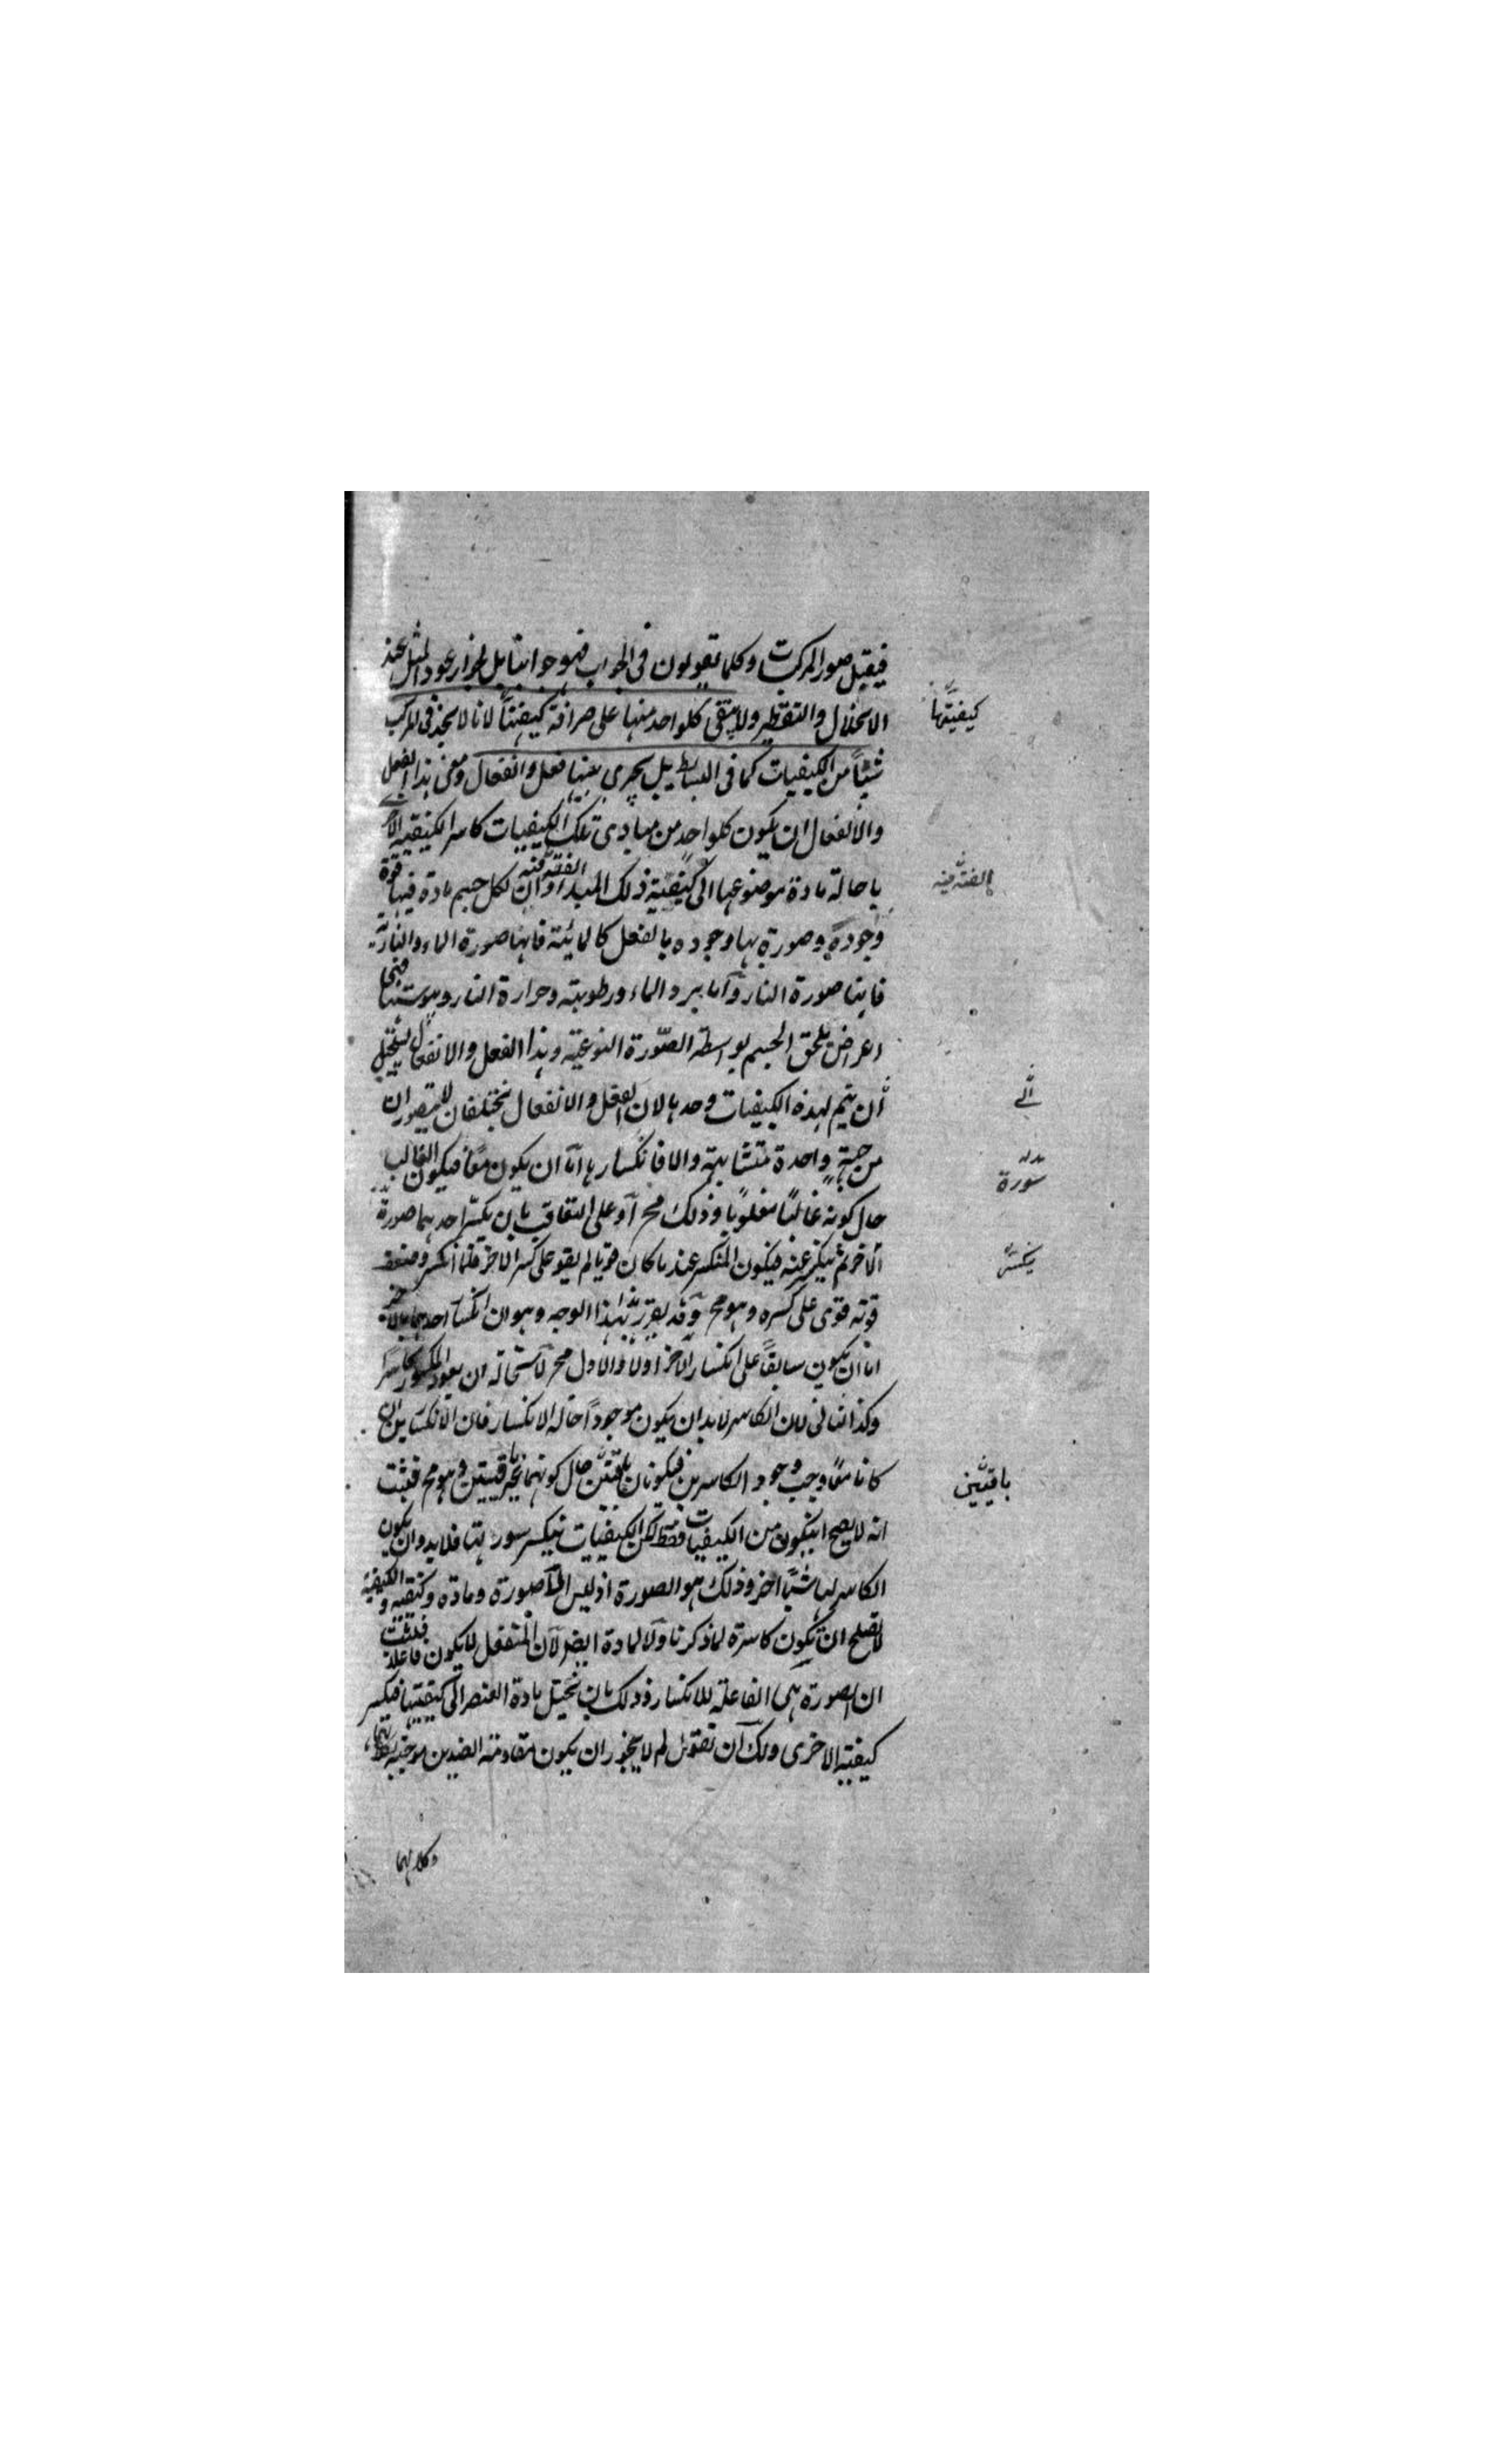 فيقبل صور المركبات وكلما تقولون فى الجواب فهو جوابنا بل لجواز عود المثل عند
الانحلال والتقطير ولا يبقى كلواحد منها على صرافة كيفيتها لانا لا نجد فى المركب
كيفيتها
شيئًا من الكيفيات كما فى البسايط بل يجرى بينها فعل وانفعال ومعنى هذا الفعل
والانفعال ان يكون كلواحد من مبادى تلك الكيفيات كاسر الكيفية الاخر
باحالة مادة موضوعها الى كيفية ذلك المبدأ وان لكل جسم مادة فيها قوة
وجوده وصورة بها وجوده بالفعل كالمائية فانها صورة الماء والنارية
فانها صورة النار وأما برد الماء ورطوبته وحرارة النار ويبوستها فهى
اعراض تلحق الجسم بواسطة الصّورة النوعية وهذا الفعل والانفعال يستحيل
أن يتم بهذه الكيفيات وحدها لان الفعل والانفعال مختلفان لا يتصوران
الى
من جهةٍ واحدة متشابهة والا فانكسارها امّا ان يكون معًا فيكون الغالب
سورة
حال كونه غالبًا مغلوبًا وذلك مح أو على التعاقب بان يكسّر احدهما صورة
الآخر ثم ينكسر عنه فيكون المنكسر عند ما كان قويا لم يقو على كسر الاخر فلما انكسر وضعف
ينكسر
قوته قوى على كسره وهو مح وقد يقرر هذا بهذا الوجه وهو ان انكسار احدهما بالاخر
اما ان يكون سابقًا على انكسار الآخر أولا والاول مح لاستحالة ان يعود المكسور كاسرًا
وكذا الثانى لان الكاسر لابد ان يكون موجودًا حالة الانكسار فان الانكسارين ان
كانا معًا وجب وجود الكاسرين فيكونان باقيتين حال كونهما غير باقيتين وهو مح فثبت
باقيتين
انه لا يصح ان يكون من الكيفيات فقط لكن الكيفيات ينكسر سورتها فلا بد وان يكون
الكاسر لها شيئًا اخر وذلك هو الصورة اذ ليس الا صورة ومادة وكيفية والكيفية
لا تصلح ان تكون كاسرة لما ذكرنا ولا المادة ايضا لأن المنفعل لا يكون فاعلا فثبت
ان الصورة هى الفاعلة للانكسار وذلك بان تحيل مادة العنصر الى كيفيتها فيكسر
كيفية الاخرى ولك أن تقول لم لا يجوز ان يكون مقاومة الضدين موجبة
وكلاهما